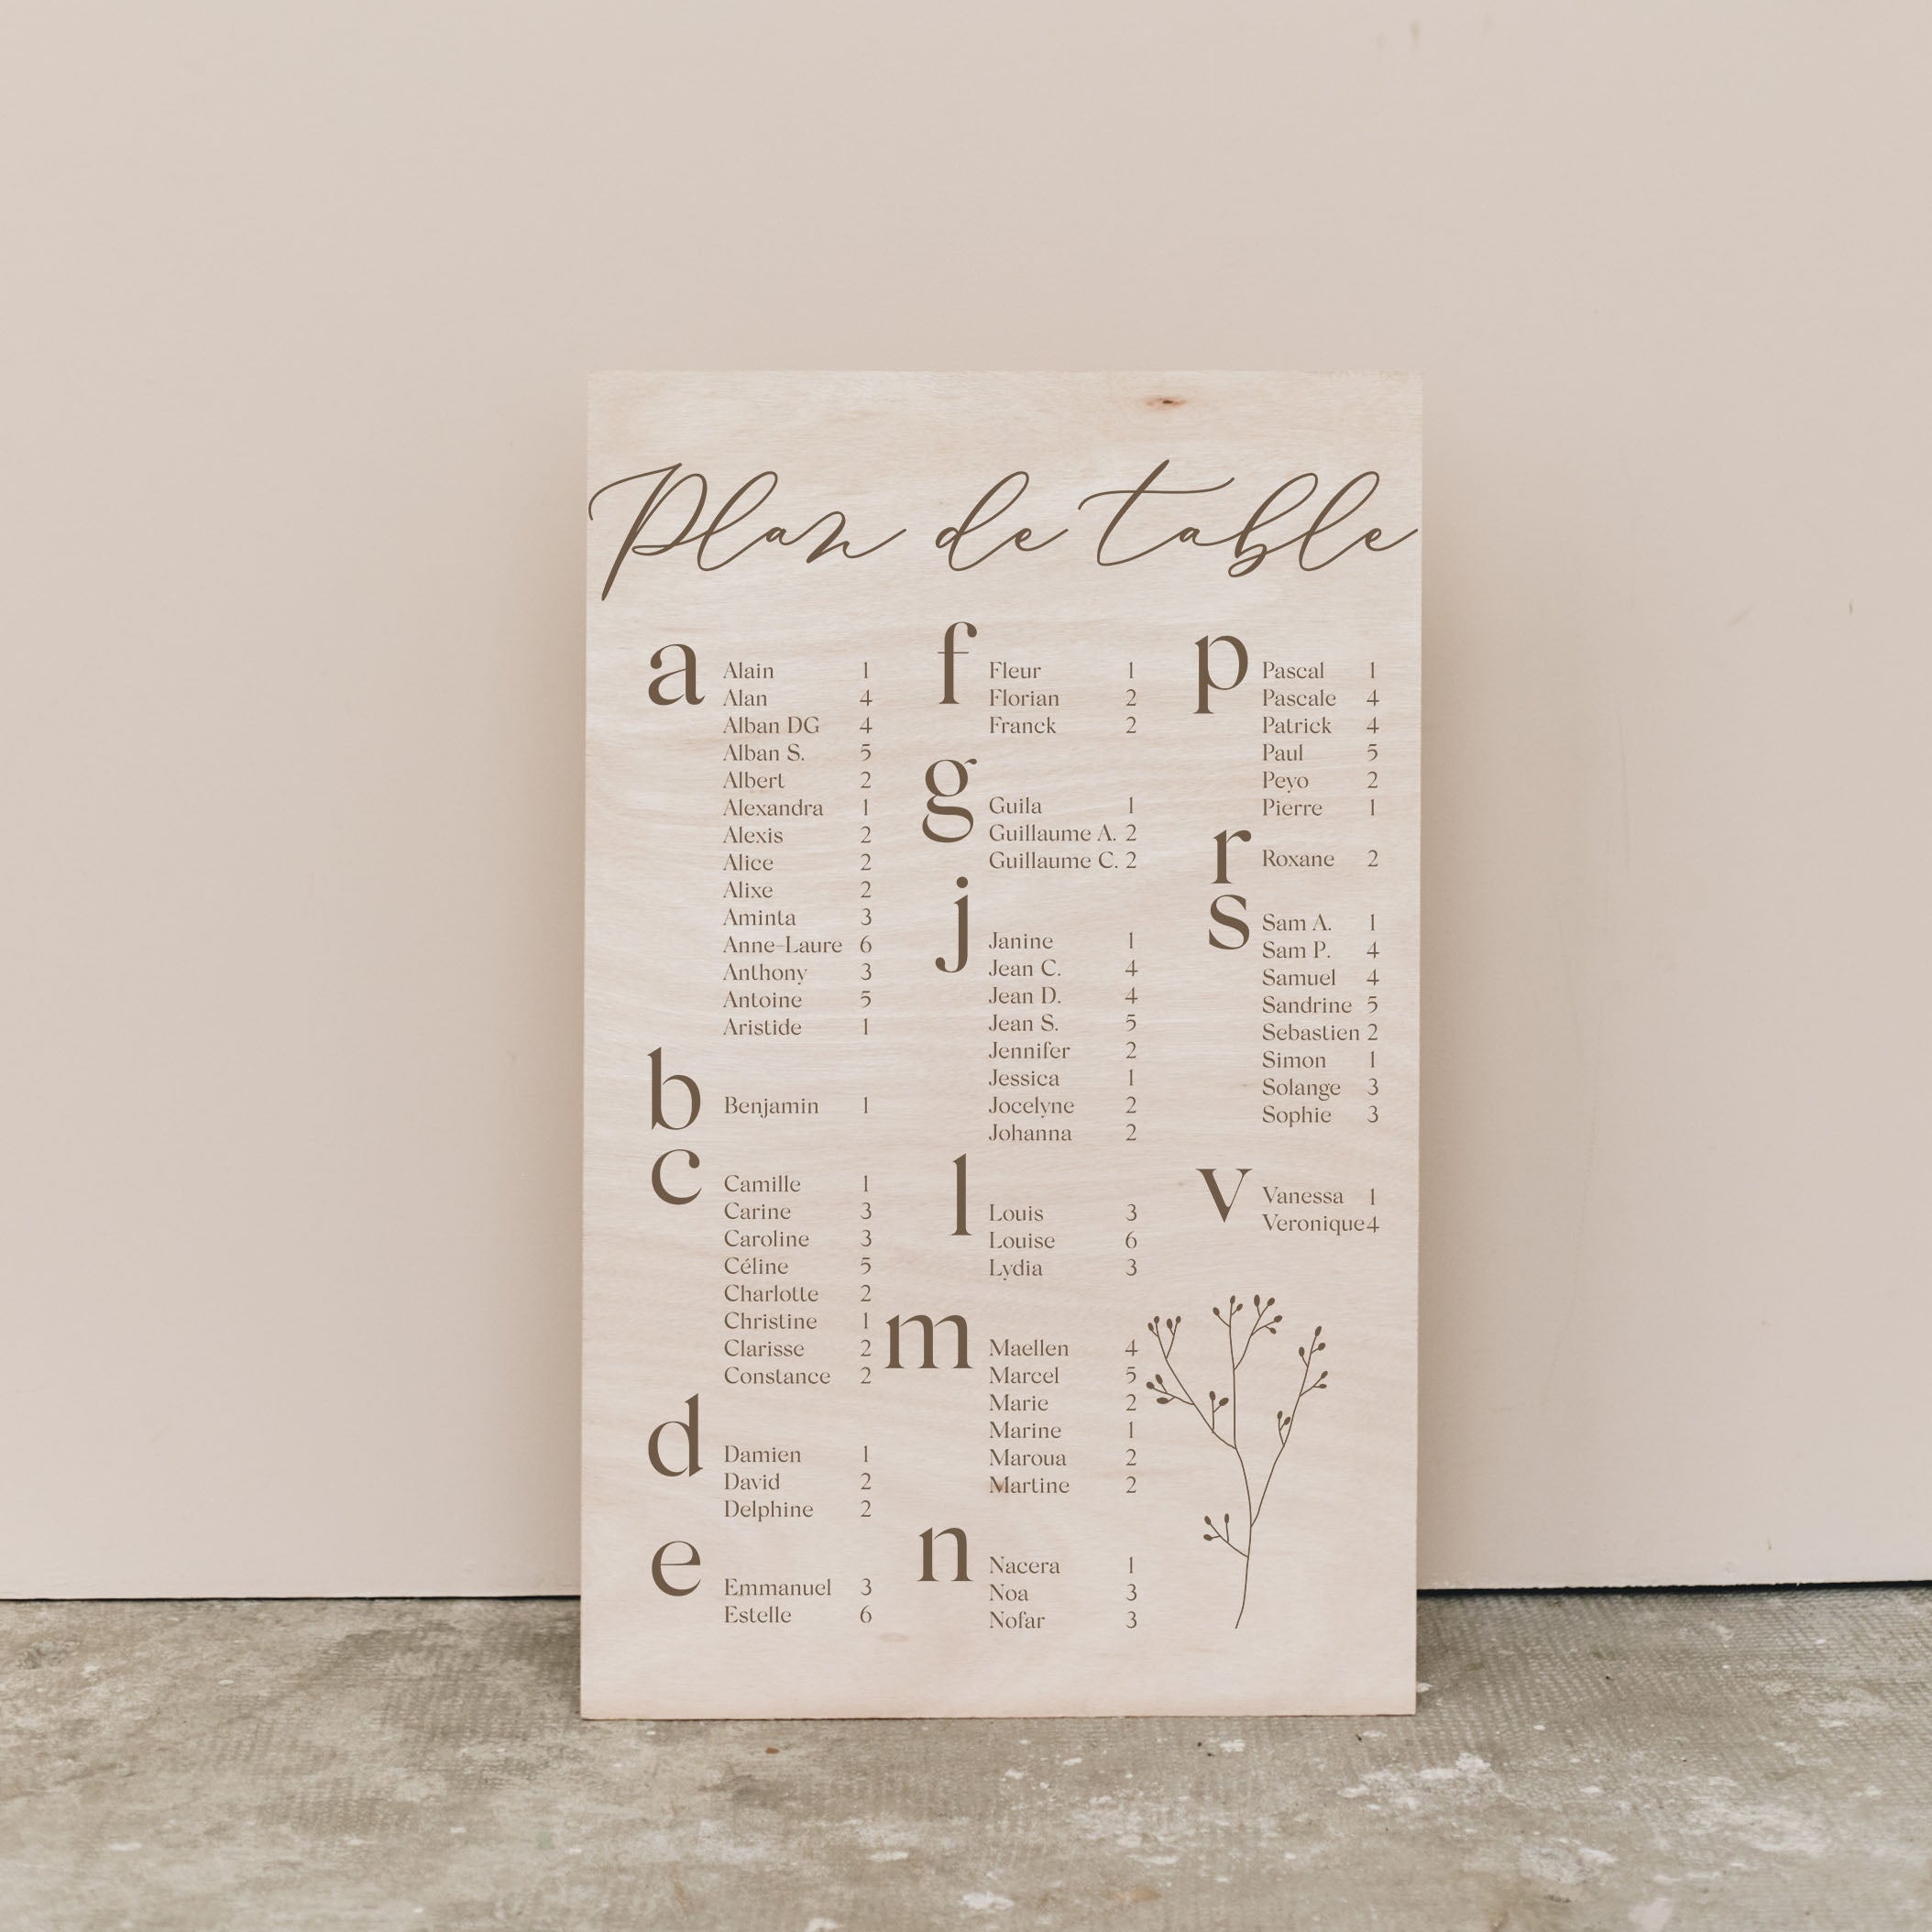 Plan de table
a
Alain 1
Alan 4
Alban DG 4
Alban S. 5
Albert 2
Alexandra 1
Alexis 2
Alice 2
Alixe 2
Aminta 3
Anne-Laure 6
Anthony 3
Antoine 5
Aristide 1
b
Benjamin 1
c
Camille 1
Carine 3
Caroline 3
Céline 5
Charlotte 2
Christine 1
Clarisse 2
Constance 2
d
Damien 1
David 2
Delphine 2
e
Emmanuel 3
Estelle 6
f
Fleur 1
Florian 2
Franck 2
g
Guila 1
Guillaume A. 2
Guillaume C. 2
j
Janine 1
Jean C. 4
Jean D. 4
Jean S. 5
Jennifer 2
Jessica 1
Jocelyne 2
Johanna 2
l
Louis 3
Louise 6
Lydia 3
m
Maellen 4
Marcel 5
Marie 2
Marine 1
Maroua 2
Martine 2
n
Nacera 1
Noa 3
Nofar 3
p
Pascal 1
Pascale 4
Patrick 4
Paul 5
Peyo 2
Pierre 1
r
Roxane 2
s
Sam A. 1
Sam P. 4
Samuel 4
Sandrine 5
Sebastien 2
Simon 1
Solange 3
Sophie 3
v
Vanessa 1
Veronique 4